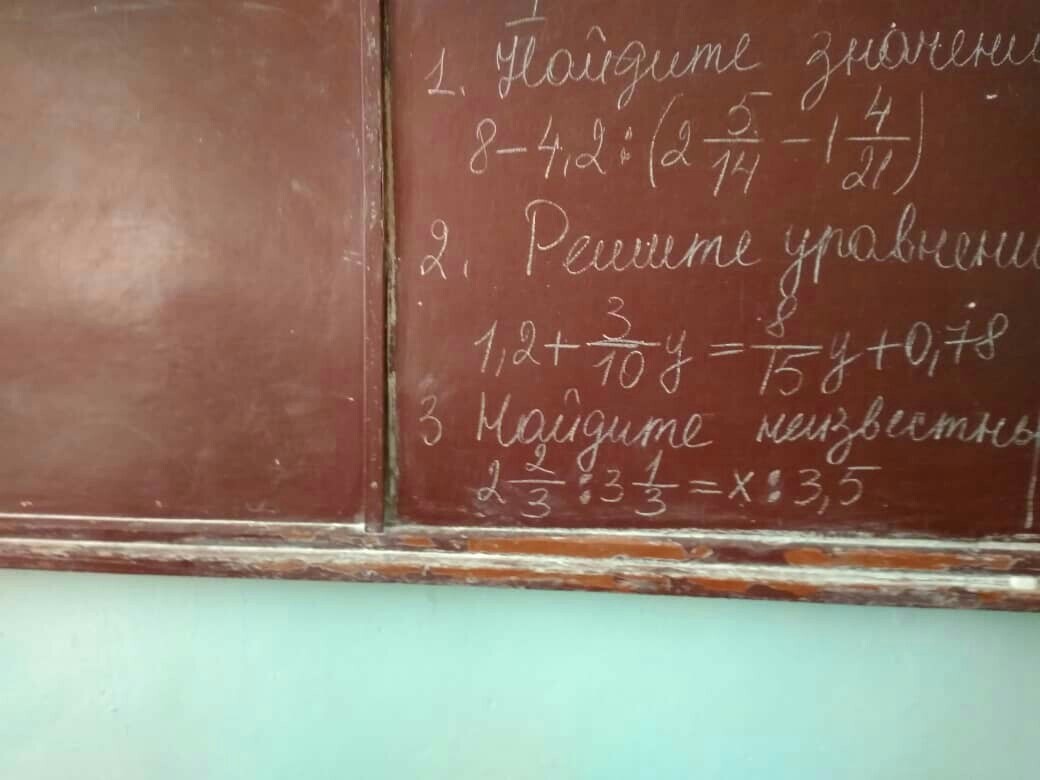 1
1. Найдите значени
8 - 4,2 : (2 5/14 - 1 4/21)
2. Решите уравнени
1,2 + 3/10 y = 8/15 y + 0,78
3 Найдите неизвестны
2 2/3 : 3 1/3 = x : 3,5